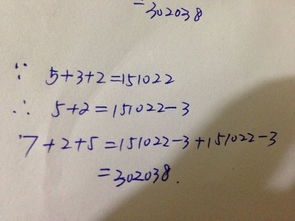 =302038
∵ 5+3+2=151022
∴ 5+2=151022-3
7+2+5=151022-3+151022-3
=302038.